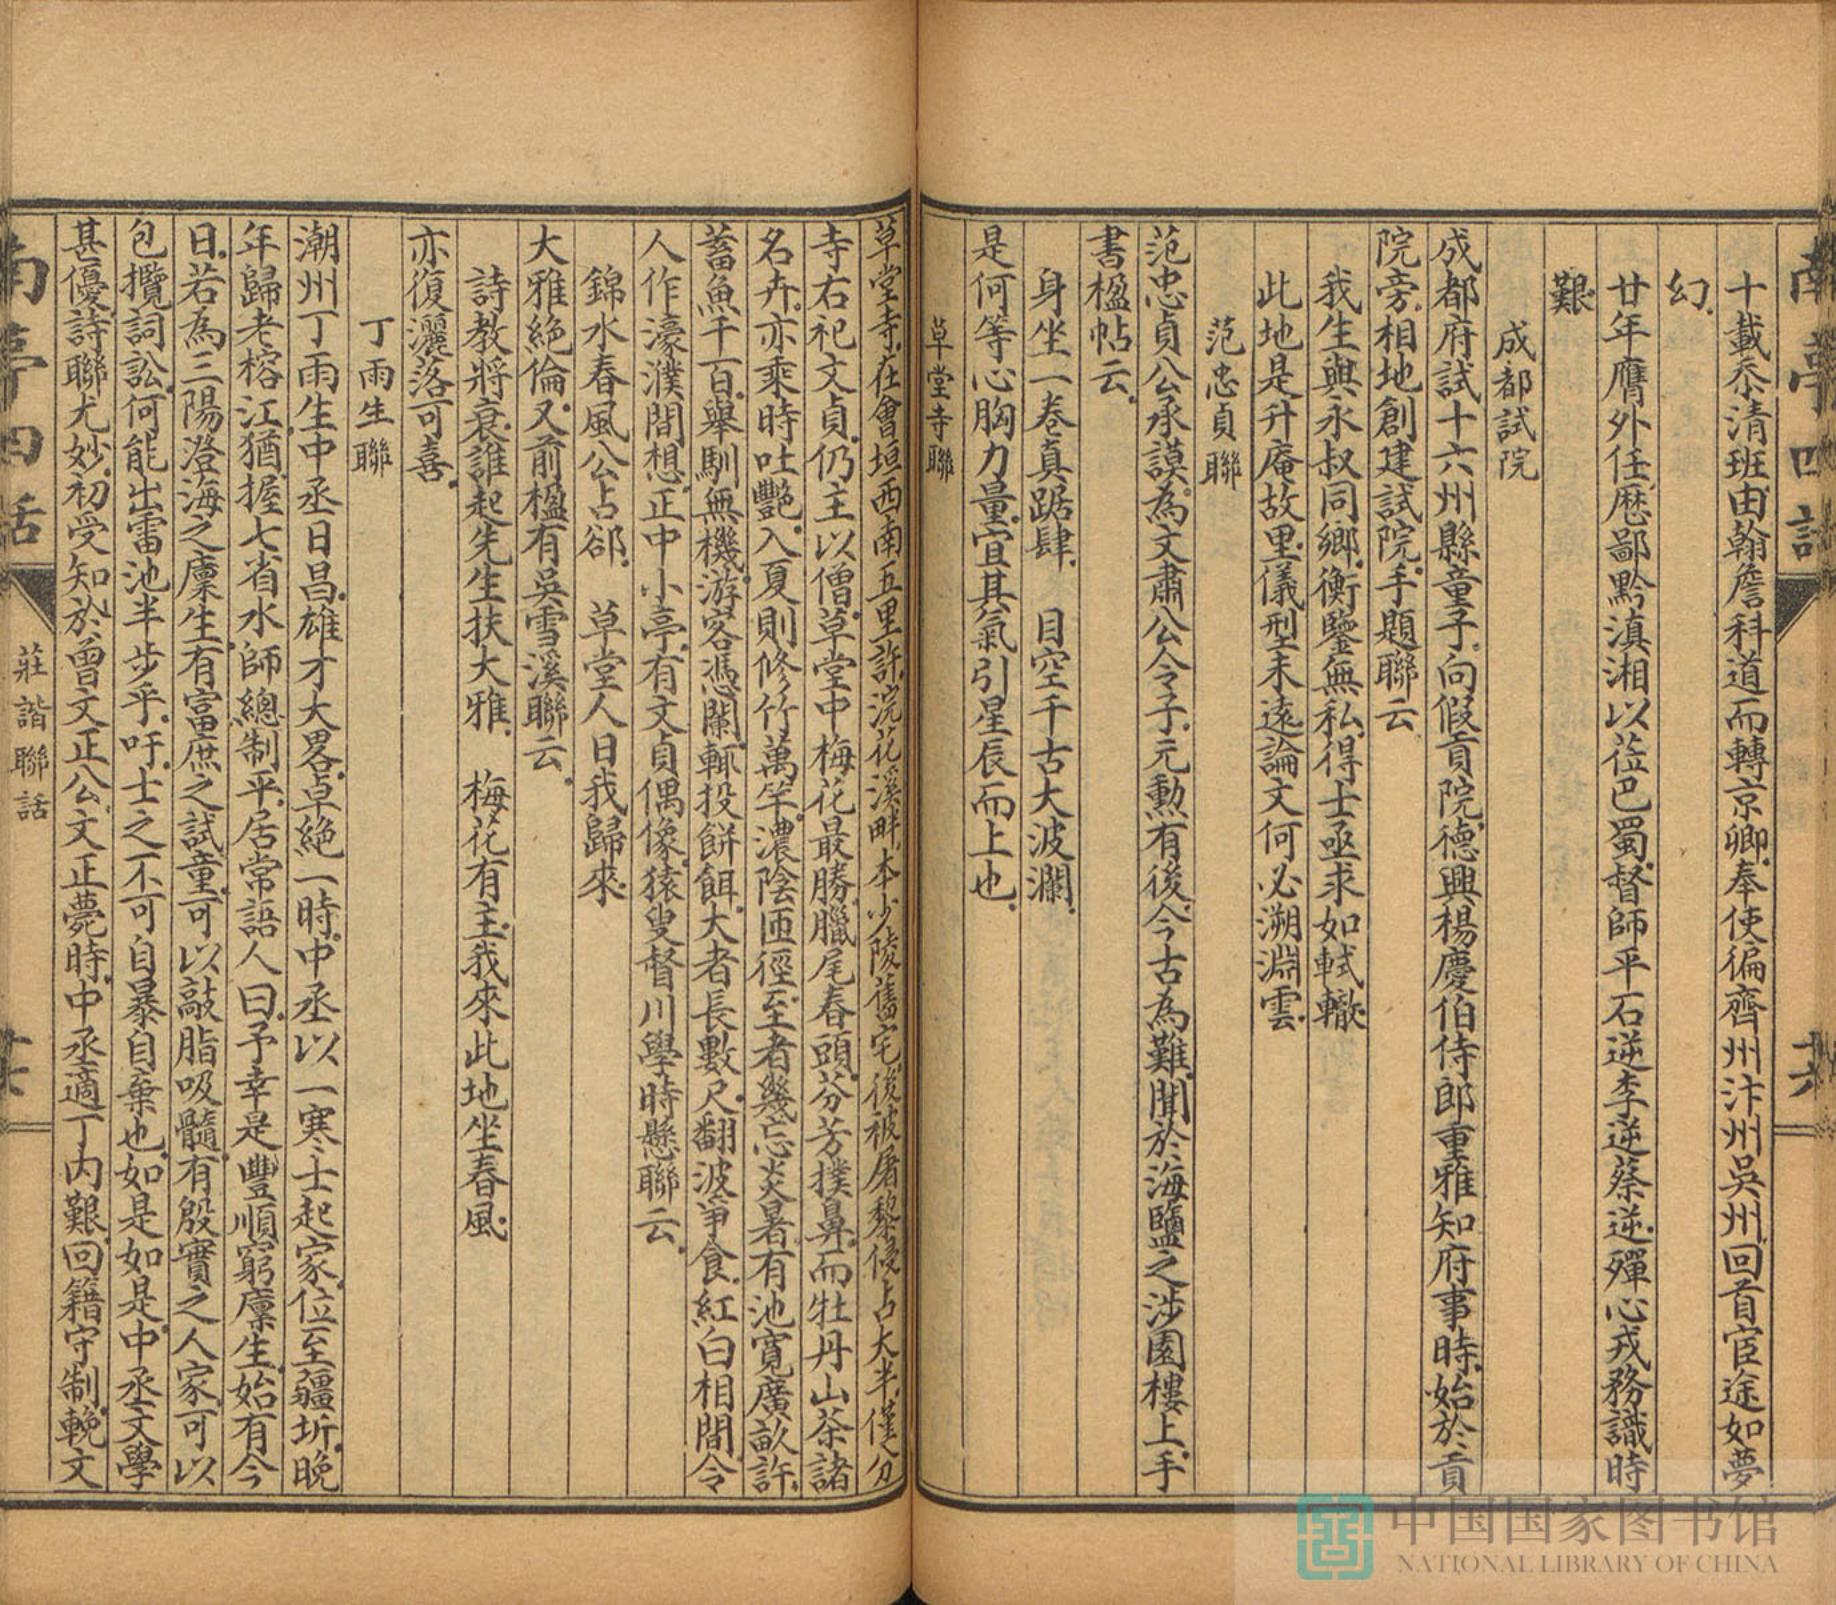 南亭四話
十載忝清班由翰詹科道而轉京卿奉使徧齊州汴州吳州回首宦途如夢
幻
廿年膺外任歷鄙黔滇湘以莅巴蜀督師平石逆李逆蔡逆殫心戎務識時
艱
成都試院
成都府試十六州縣童子向假貢院德興楊慶伯侍郎重雅知府事時始於貢
院旁相地創建試院手題聯云
我生與永叔同鄉衡鑒無私得士亟求如軾轍
此地是升庵故里儀型未遠論文何必溯淵雲
范忠貞聯
范忠貞公承謨為文肅公令子元勳有後今古為難聞於海鹽之涉園樓上手
書楹帖云
身坐一卷真踞肆　目空千古大波瀾
是何等心胸力量宜其氣引星辰而上也
草堂寺聯
草堂寺在會垣西南五里許浣花溪畔本少陵舊宅後被屠黎侵占大半僅分
寺右祀文貞仍主以僧草堂中梅花最勝臘尾春頭芬芳撲鼻而牡丹山茶諸
名卉亦乘時吐艷入夏則修竹萬竿濃陰匝徑至者幾忘炎暑有池寬廣畝許
蓄魚千百舉馴無機游客憑闌輒投餅餌大者長數尺翻波爭食紅白相間令
人作濠濮間想正中小亭有文貞偶像猿叟督川學時懸聯云
錦水春風公占郤　草堂人日我歸來
大雅絕倫又前楹有吳雪溪聯云
詩教將衰誰起先生扶大雅　梅花有主我來此地坐春風
亦復灑落可喜
丁雨生聯
潮州丁雨生中丞日昌雄才大畧卓絕一時中丞以一寒士起家位至疆圻晚
年歸老榕江猶握七省水師總制平居常語人曰予幸是豐順窮廩生始有今
日若為三陽澄海之廩生有富庶之試童可以敲脂吸髓有殷實之人家可以
包攬詞訟何能出雷池半步乎吁士之不可自暴自棄也如是如是中丞文學
甚優詩聯尤妙初受知於曾文正公文正薨時中丞適丁內艱回籍守制輓文
南亭四話
莊諧聯話
中国国家图书馆
NATIONAL LIBRARY OF CHINA